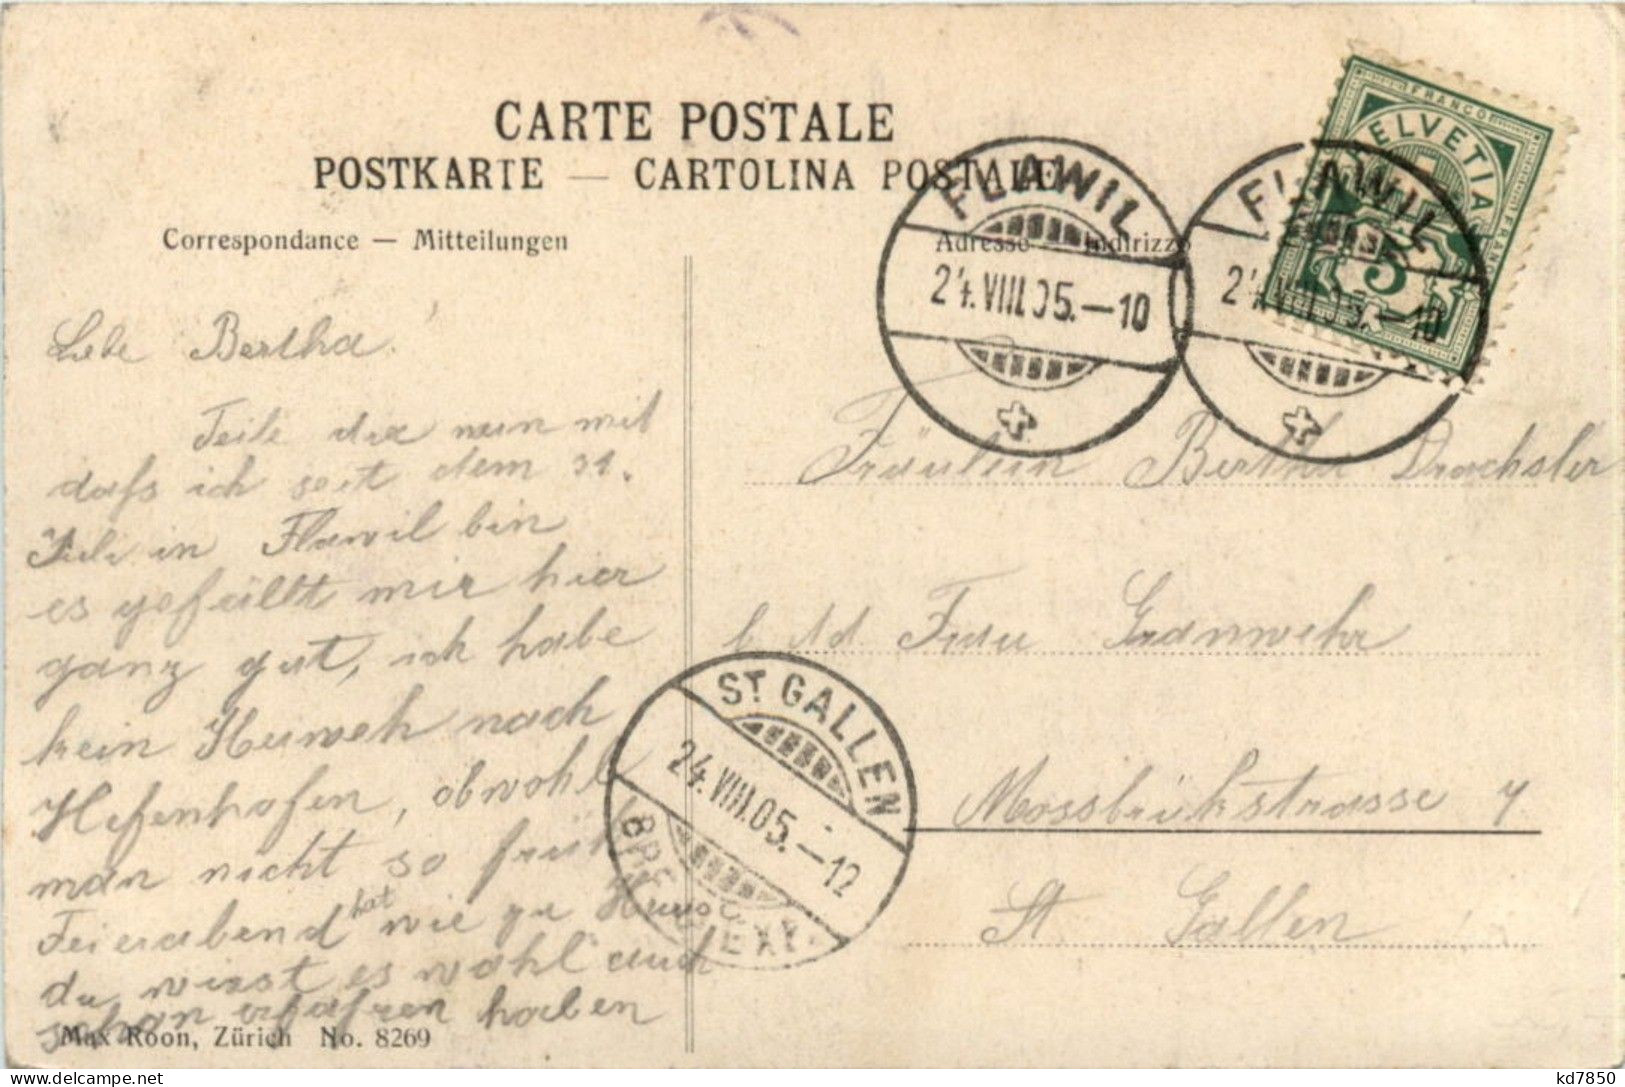 CARTE POSTALE
POSTKARTE — CARTOLINA POSTALE
Correspondance — Mitteilungen
Adresse — Indirizzo
FRANCO
HELVETIA
FRANCO
5
FLAWIL
24.VIII.05.—10
FLAWIL
24.VIII.05.—10
Liebe Bertha.
Teile dir nun mit
dafs ich seit dem 31.
Juli in Flawil bin
es gefällt mir hier
ganz gut, ich habe
kein Heimweh nach
Hefenhofen, obwohl
man nicht so früh
Feierabend hat wie zu Haus
du wirst es wohl auch
schon erfahren haben
Fräulein Bertha Drachsler
Frau Granwehr
Moosbrükstrasse 7
St. Gallen
ST. GALLEN
24.VIII.05.—12
BRIEFEXP.
Max Roon, Zürich No. 8269
kd7850